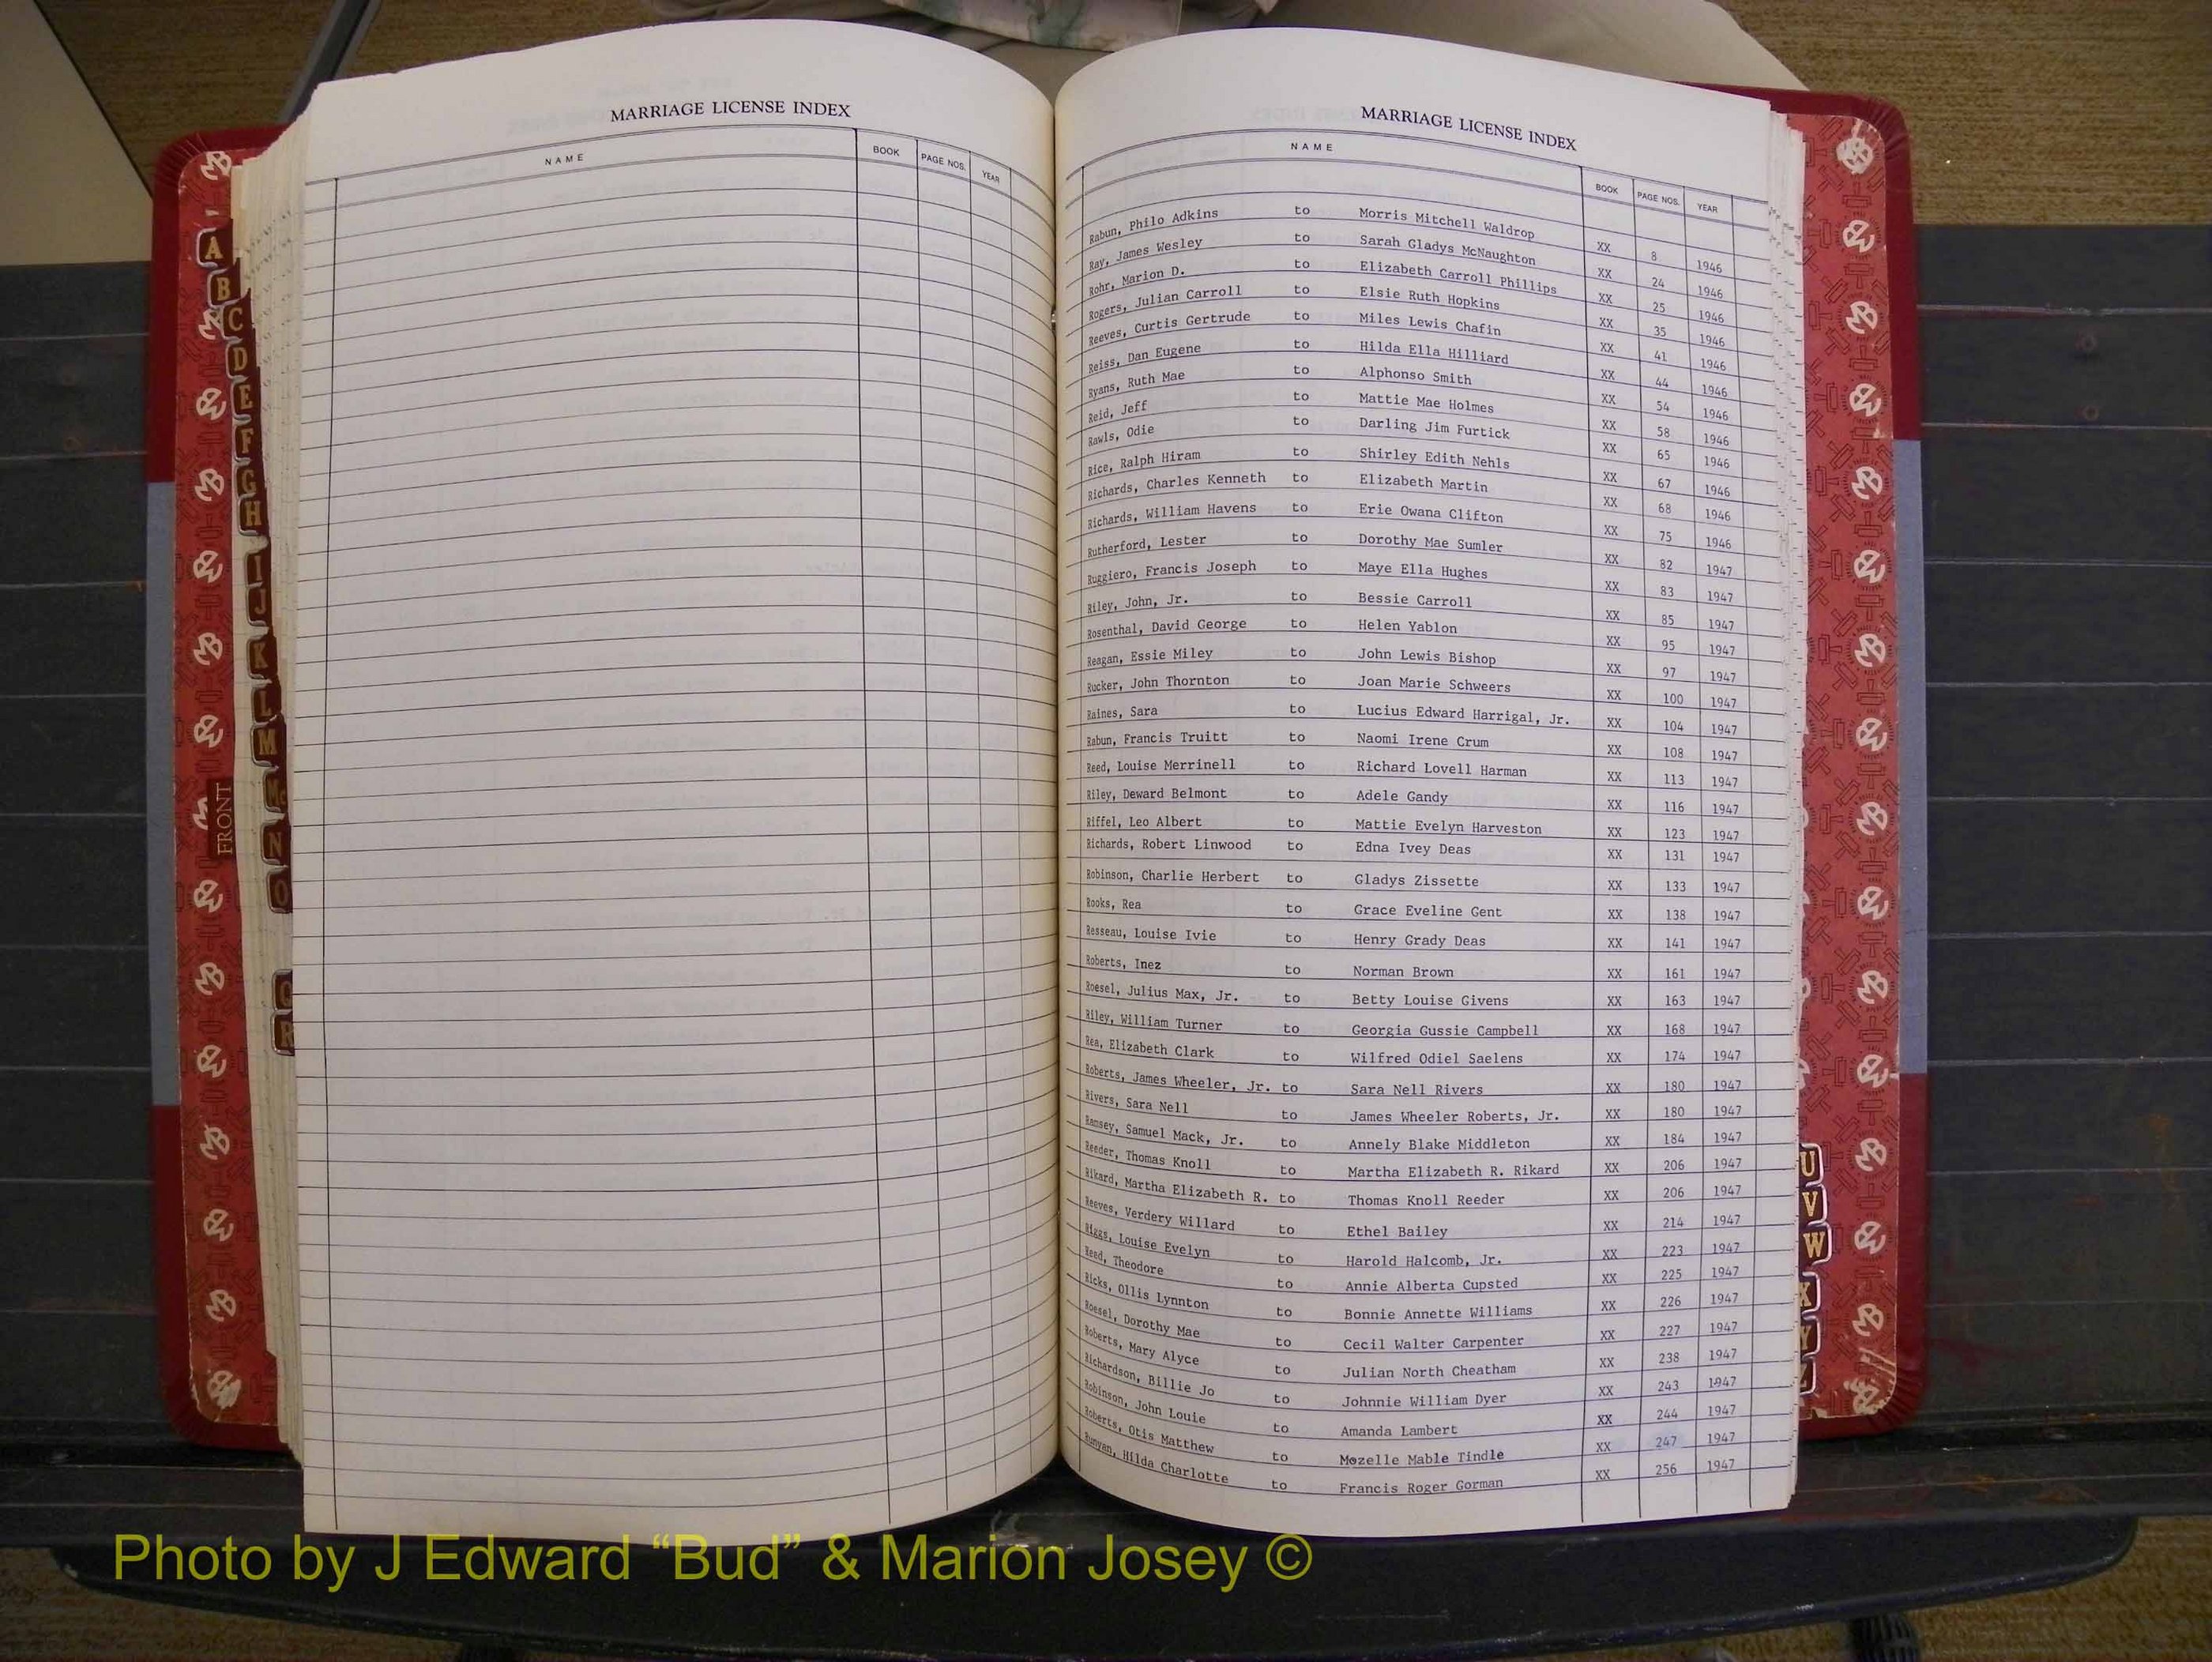 MARRIAGE LICENSE INDEX
NAME BOOK PAGE NOS. YEAR
A
B
C
D
E
F
G
H
I
J
K
L
M
Mc
N
O
Q
R
FRONT
MARRIAGE LICENSE INDEX
NAME BOOK PAGE NOS. YEAR
Rabun, Philo Adkins to Morris Mitchell Waldrop XX 8 1946
Ray, James Wesley to Sarah Gladys McNaughton XX 24 1946
Rohr, Marion D. to Elizabeth Carroll Phillips XX 25 1946
Rogers, Julian Carroll to Elsie Ruth Hopkins XX 35 1946
Reeves, Curtis Gertrude to Miles Lewis Chafin XX 41 1946
Reiss, Dan Eugene to Hilda Ella Hilliard XX 44 1946
Ryans, Ruth Mae to Alphonso Smith XX 54 1946
Reid, Jeff to Mattie Mae Holmes XX 58 1946
Rawls, Odie to Darling Jim Furtick XX 65 1946
Rice, Ralph Hiram to Shirley Edith Nehls XX 67 1946
Richards, Charles Kenneth to Elizabeth Martin XX 68 1946
Richards, William Havens to Erie Owana Clifton XX 75 1946
Rutherford, Lester to Dorothy Mae Sumler XX 82 1947
Ruggiero, Francis Joseph to Maye Ella Hughes XX 83 1947
Riley, John, Jr. to Bessie Carroll XX 85 1947
Rosenthal, David George to Helen Yablon XX 95 1947
Reagan, Essie Miley to John Lewis Bishop XX 97 1947
Rucker, John Thornton to Joan Marie Schweers XX 100 1947
Raines, Sara to Lucius Edward Harrigal, Jr. XX 104 1947
Rabun, Francis Truitt to Naomi Irene Crum XX 108 1947
Reed, Louise Merrinell to Richard Lovell Harman XX 113 1947
Riley, Deward Belmont to Adele Gandy XX 116 1947
Riffel, Leo Albert to Mattie Evelyn Harveston XX 123 1947
Richards, Robert Linwood to Edna Ivey Deas XX 131 1947
Robinson, Charlie Herbert to Gladys Zissette XX 133 1947
Rooks, Rea to Grace Eveline Gent XX 138 1947
Resseau, Louise Ivie to Henry Grady Deas XX 141 1947
Roberts, Inez to Norman Brown XX 161 1947
Roesel, Julius Max, Jr. to Betty Louise Givens XX 163 1947
Riley, William Turner to Georgia Gussie Campbell XX 168 1947
Rea, Elizabeth Clark to Wilfred Odiel Saelens XX 174 1947
Roberts, James Wheeler, Jr. to Sara Nell Rivers XX 180 1947
Rivers, Sara Nell to James Wheeler Roberts, Jr. XX 180 1947
Ramsey, Samuel Mack, Jr. to Annely Blake Middleton XX 184 1947
Reeder, Thomas Knoll to Martha Elizabeth R. Rikard XX 206 1947
Rikard, Martha Elizabeth R. to Thomas Knoll Reeder XX 206 1947
Reeves, Verdery Willard to Ethel Bailey XX 214 1947
Riggs, Louise Evelyn to Harold Halcomb, Jr. XX 223 1947
Reed, Theodore to Annie Alberta Cupsted XX 225 1947
Ricks, Ollis Lynnton to Bonnie Annette Williams XX 226 1947
Roesel, Dorothy Mae to Cecil Walter Carpenter XX 227 1947
Roberts, Mary Alyce to Julian North Cheatham XX 238 1947
Richardson, Billie Jo to Johnnie William Dyer XX 243 1947
Robinson, John Louie to Amanda Lambert XX 244 1947
Roberts, Otis Matthew to Mozelle Mable Tindle XX 247 1947
Runyan, Hilda Charlotte to Francis Roger Gorman XX 256 1947
U
V
W
X
Y
Photo by J Edward “Bud” & Marion Josey ©